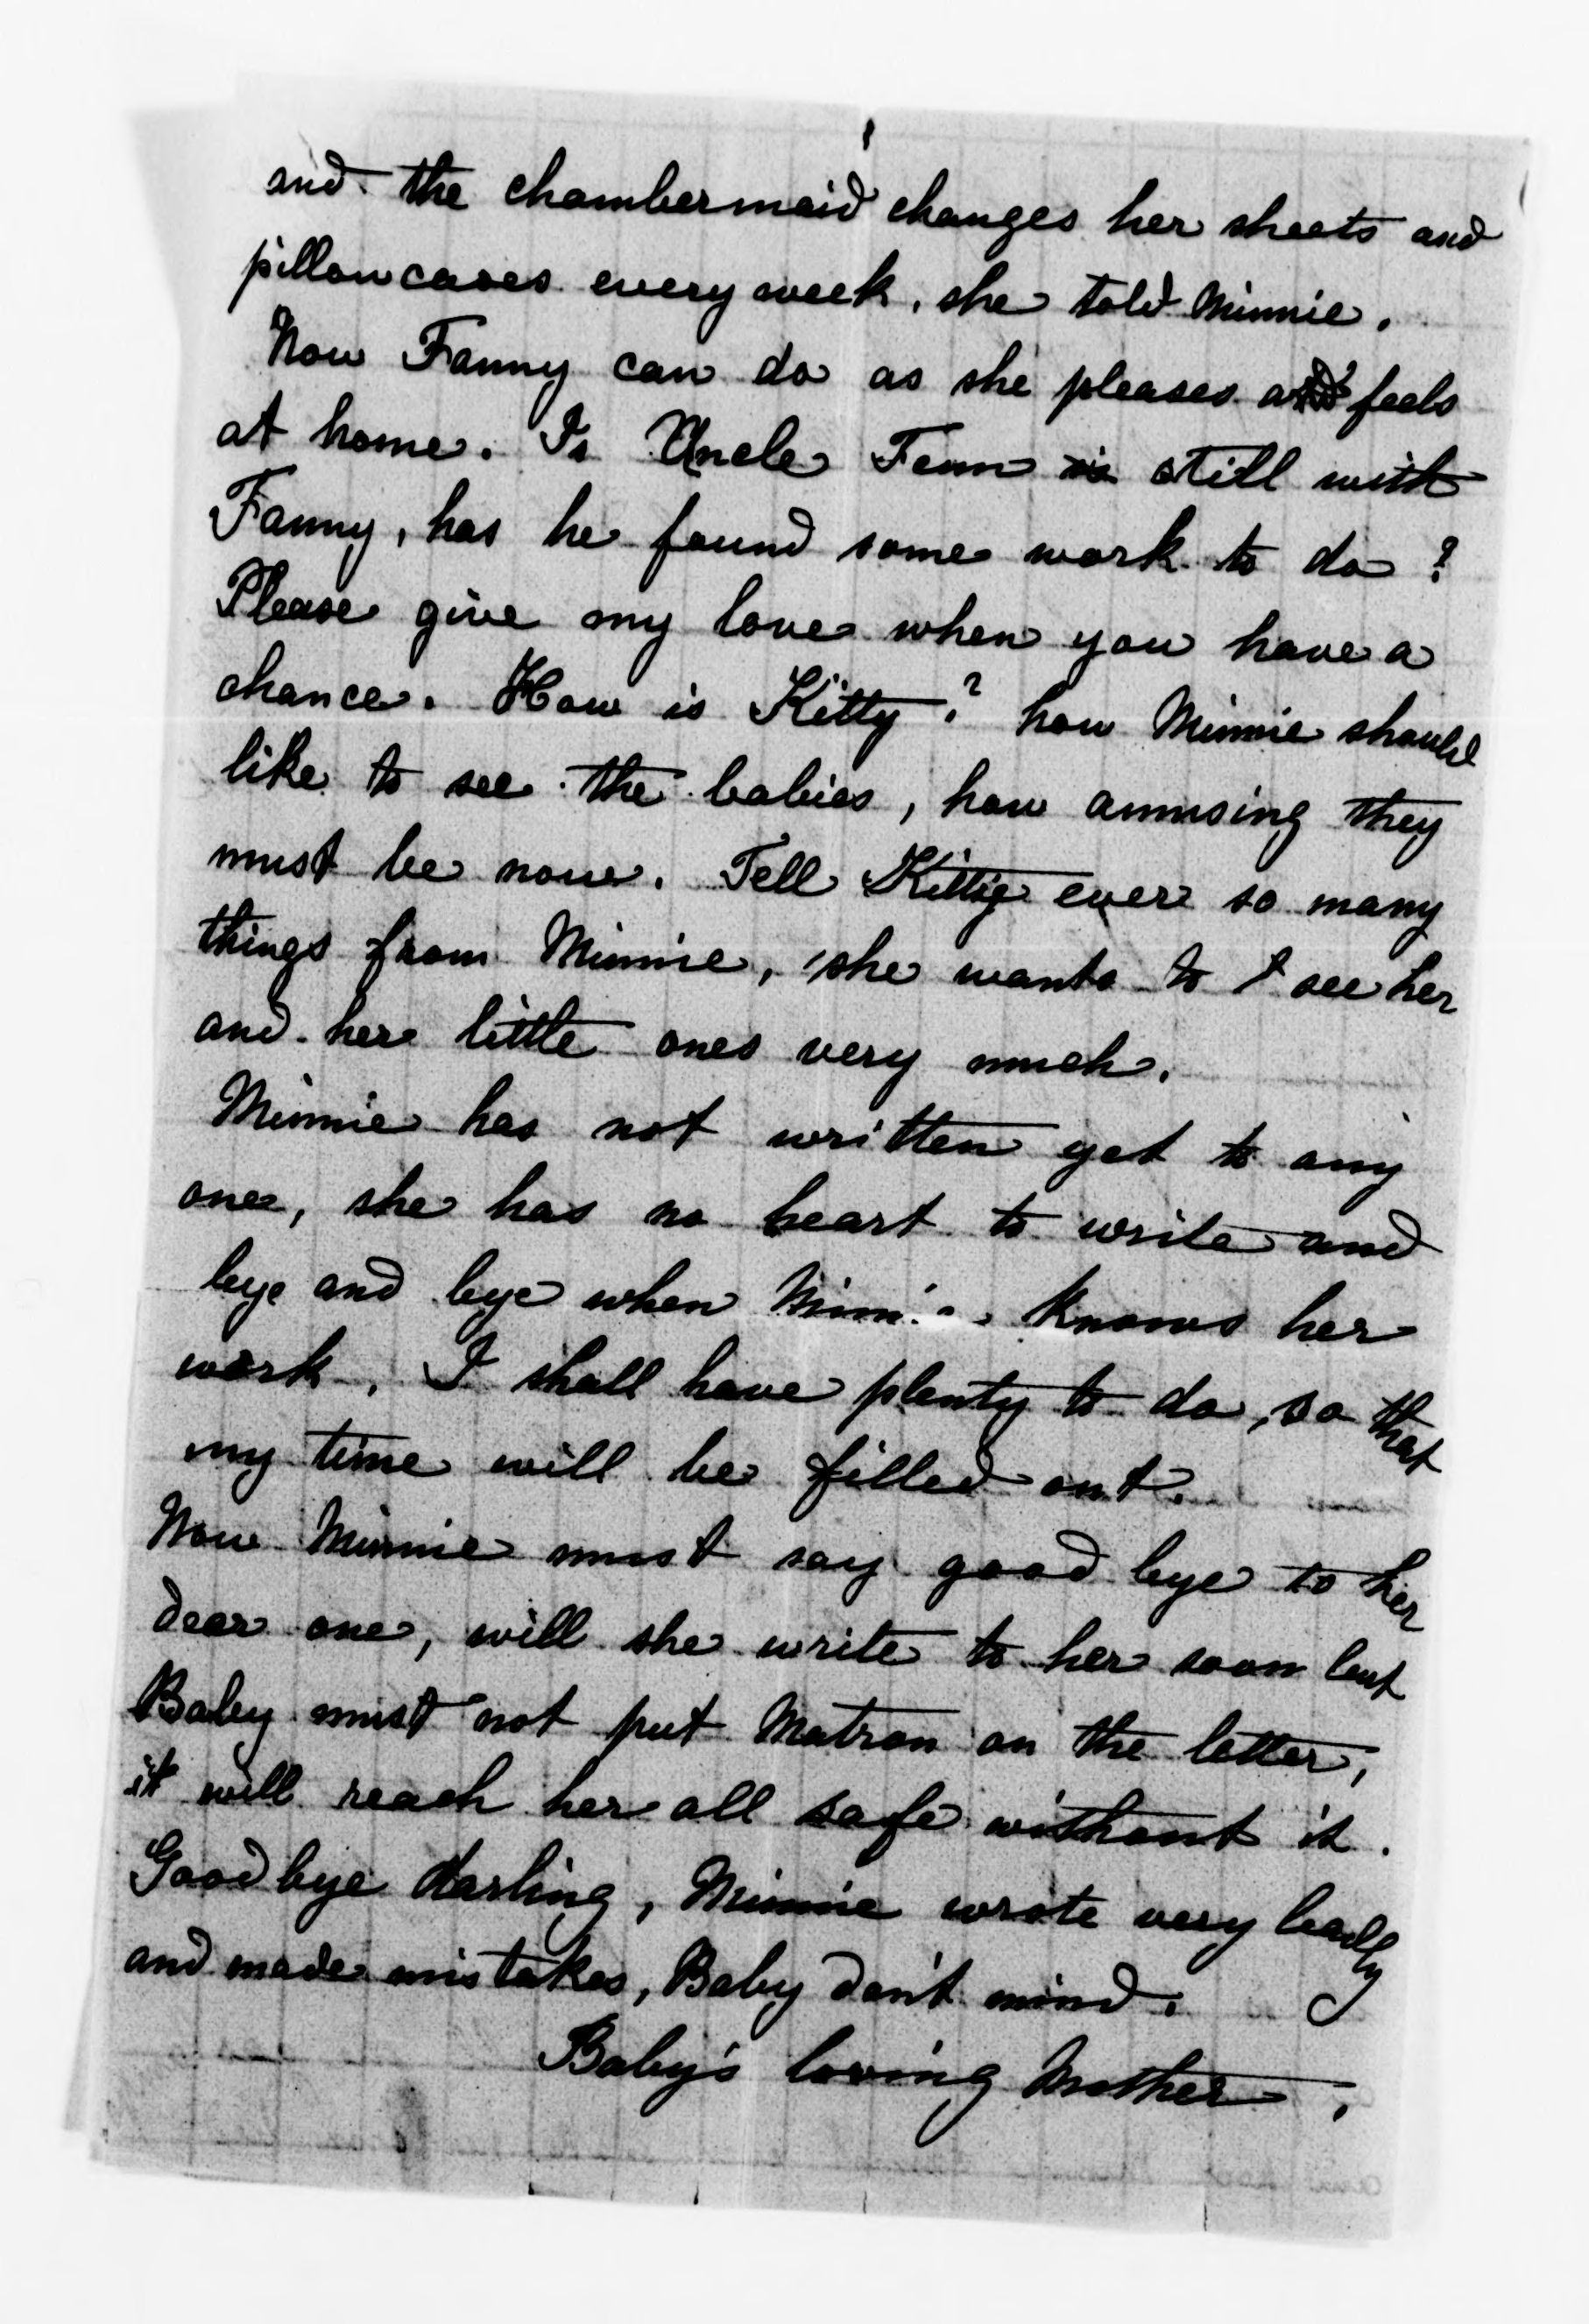 and the chambermaid changes her sheets and
pillowcases every week, she told Minnie.
Now Fanny can do as she pleases and feels
at home. Is Uncle Fenn is still with
Fanny, has he found some work to do?
Please give my love when you have a
chance. How is Kitty? how Minnie should
like to see the babies, how amusing they
must be now. Tell Kittie ever so many
things from Minnie, she wants to t see her
and her little ones very much.
Minnie has not written yet to any
one, she has no heart to write and
bye and bye when Minnie knows her
work, I shall have plenty to do, so that
my time will be filled out.
Now Minnie must say good bye to her
dear one, will she write to her soon but
Baby must not put Matron on the letter,
it will reach her all safe without it.
Good bye darling, Minnie wrote very badly
and made mistakes, Baby don't mind.
Baby's loving Mother.